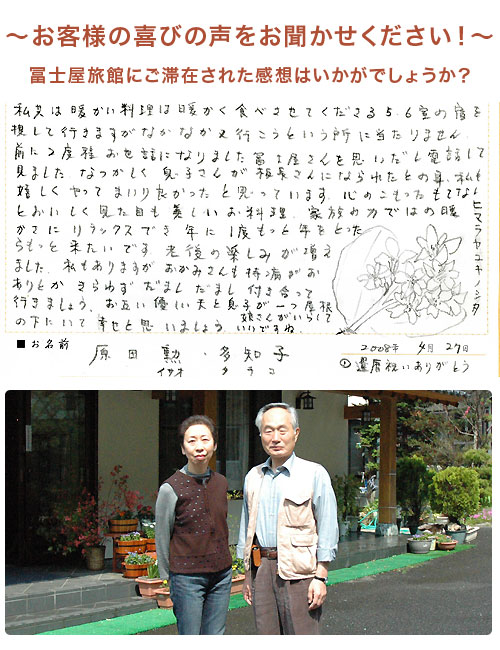 ～お客様の喜びの声をお聞かせください！～
冨士屋旅館にご滞在された感想はいかがでしょうか？
私共は暖かい料理は暖かく食べさせてくださる5.6室の宿を
捜して行きますがなかなか又行こうという所に当たりません。
前に2度程お世話になりました冨士屋さんを思いだし電話して
見ました。なつかしく息子さんが板長さんになられたとの事、私も
嬉しくやってまいり良かったと思っています。心のこもったもてなし
とおいしく見た目も美しいお料理、家族の力ではの暖
かさにリラックスでき年に1度もっと年をとった
らもっと来たいです。老後の楽しみが増え
ました。私もありますがおかみさんも持病がお
ありとか きらわず だましだまし 付き合って
行きましょう。お互い優しい夫と息子が一つ屋根
娘さんがいらして
の下にいて幸せと思いましょう。いいですね。
ヒマラヤユキノシタ
■お名前
原田 勲・多知子
イサオ タチコ
2008年 4月 27日
①還暦祝いありがとう